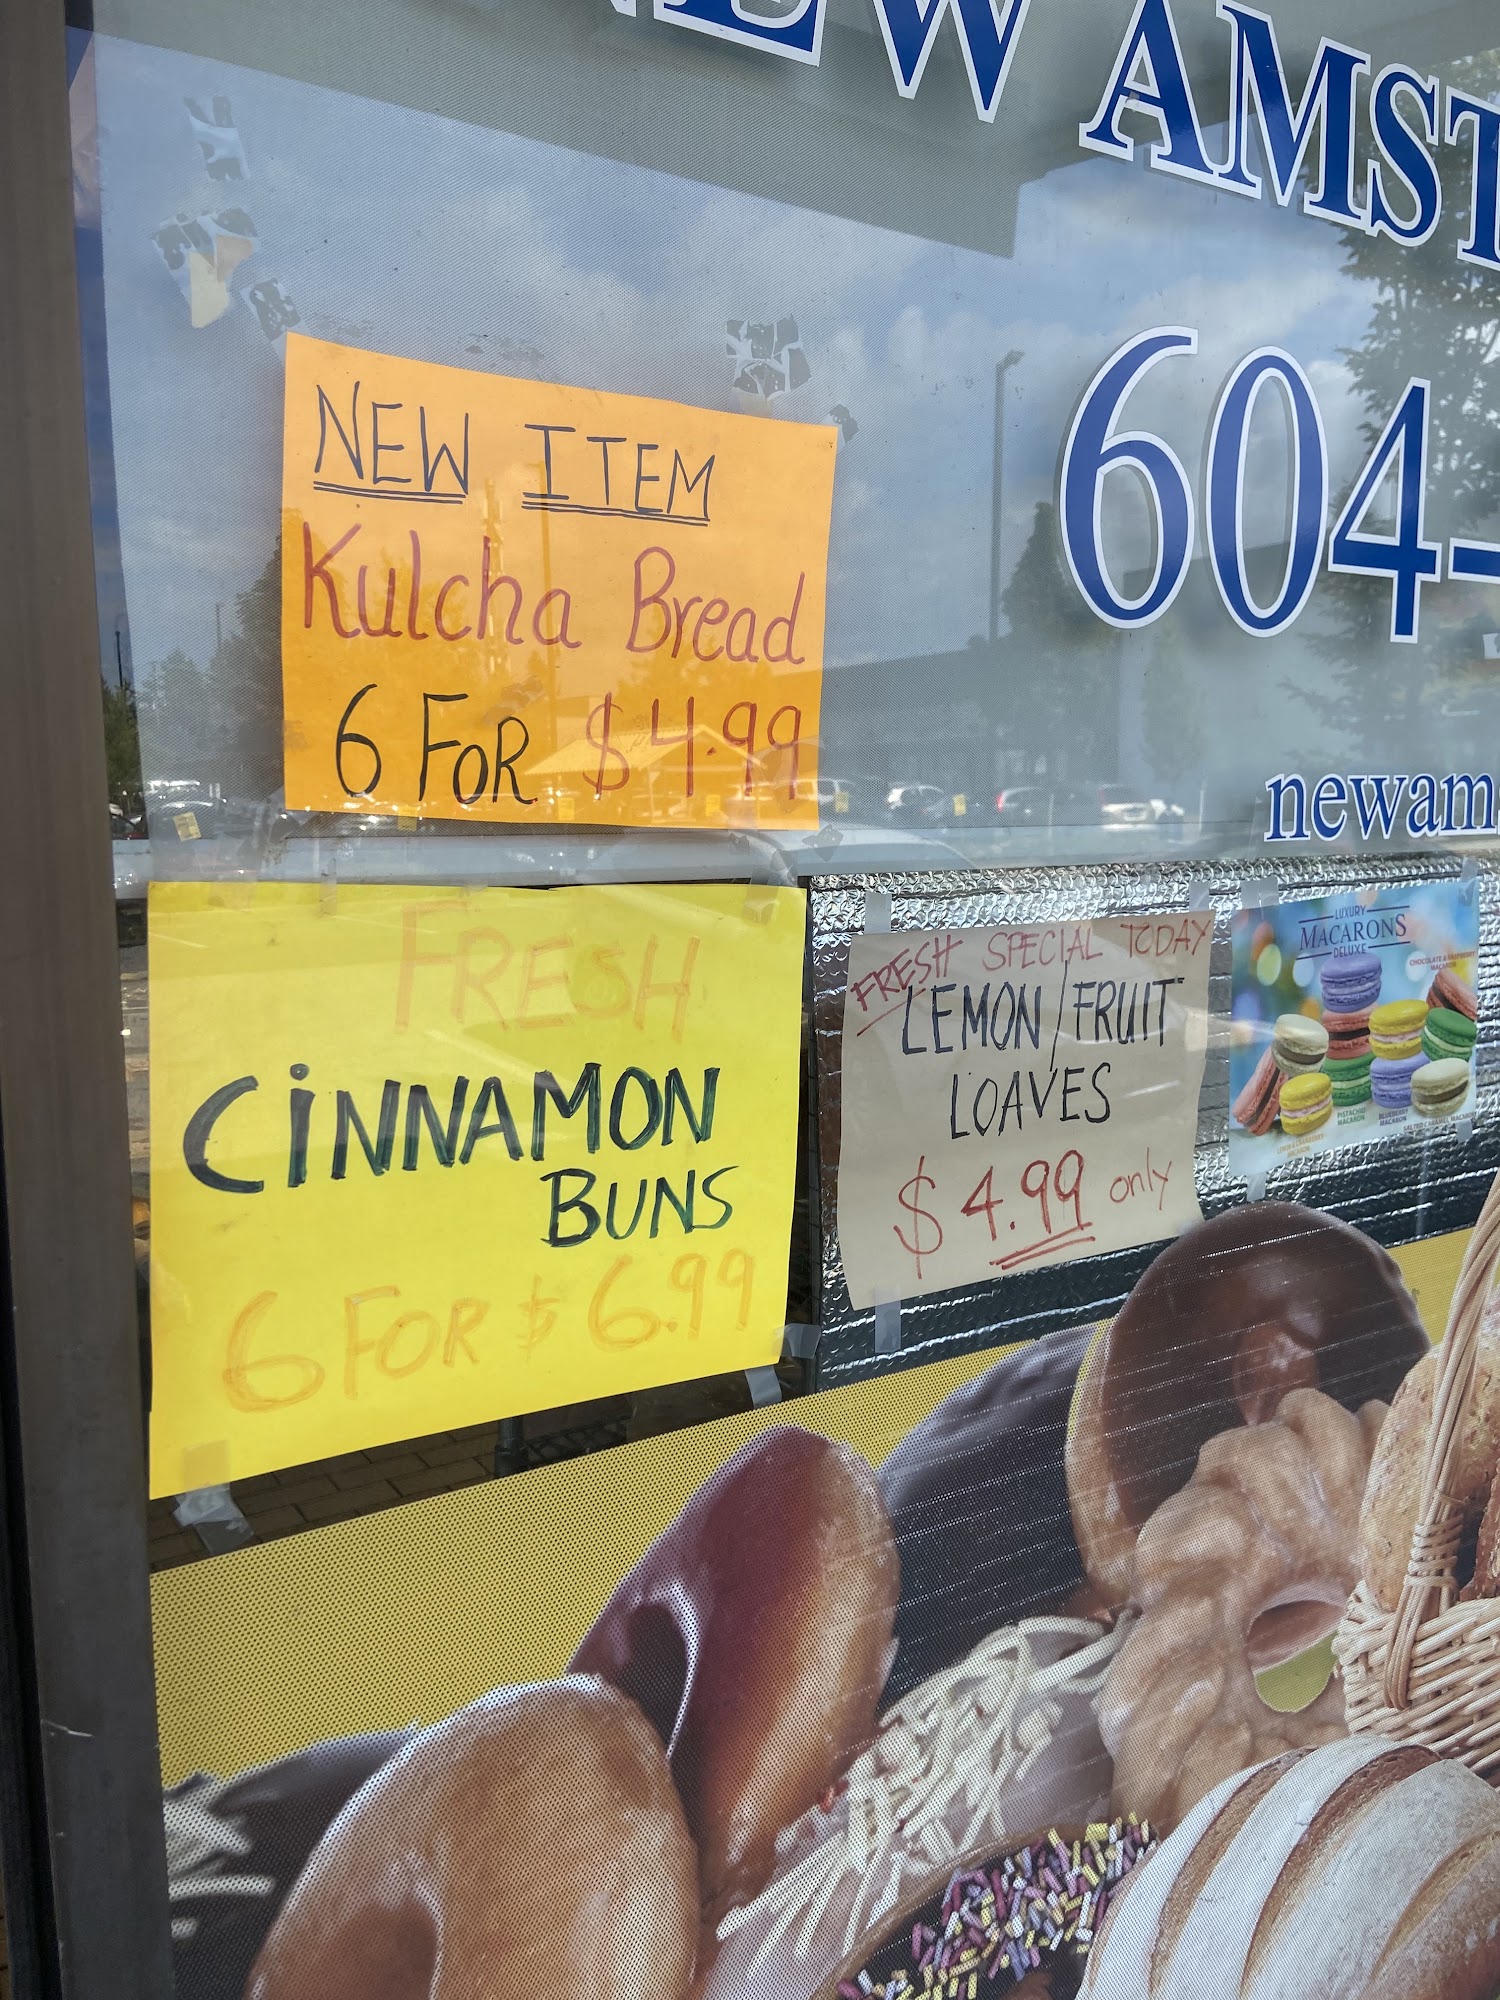 NEW AMST
604-
newam
NEW ITEM
Kulcha Bread
6 FOR $4.99
FRESH
CINNAMON
BUNS
6 FOR $6.99
FRESH SPECIAL TODAY
LEMON/FRUIT
LOAVES
$4.99 only
LUXURY
MACARONS
DELUXE
CHOCOLATE & RASPBERRY
MACARON
PISTACHIO
MACARON
BLUEBERRY
MACARON
SALTED CARAMEL MACARON